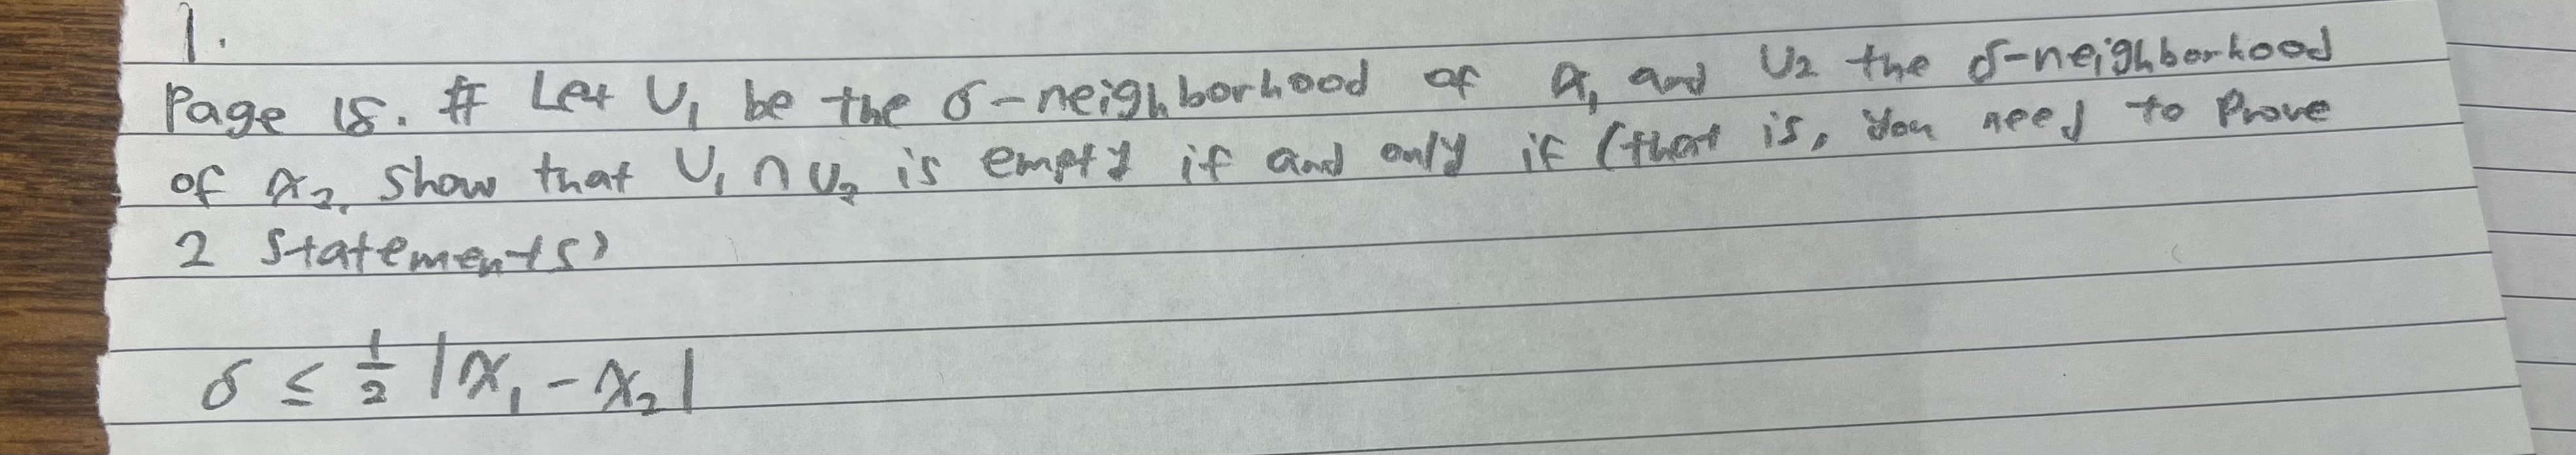 1.
Page 18. # Let U₁ be the δ-neighborhood of x₁ and U₂ the δ-neighborhood
of x₂. Show that U₁ ∩ U₂ is empty if and only if (that is, you need to prove
2 statements)
δ ≤ 1/2 |x₁ - x₂|